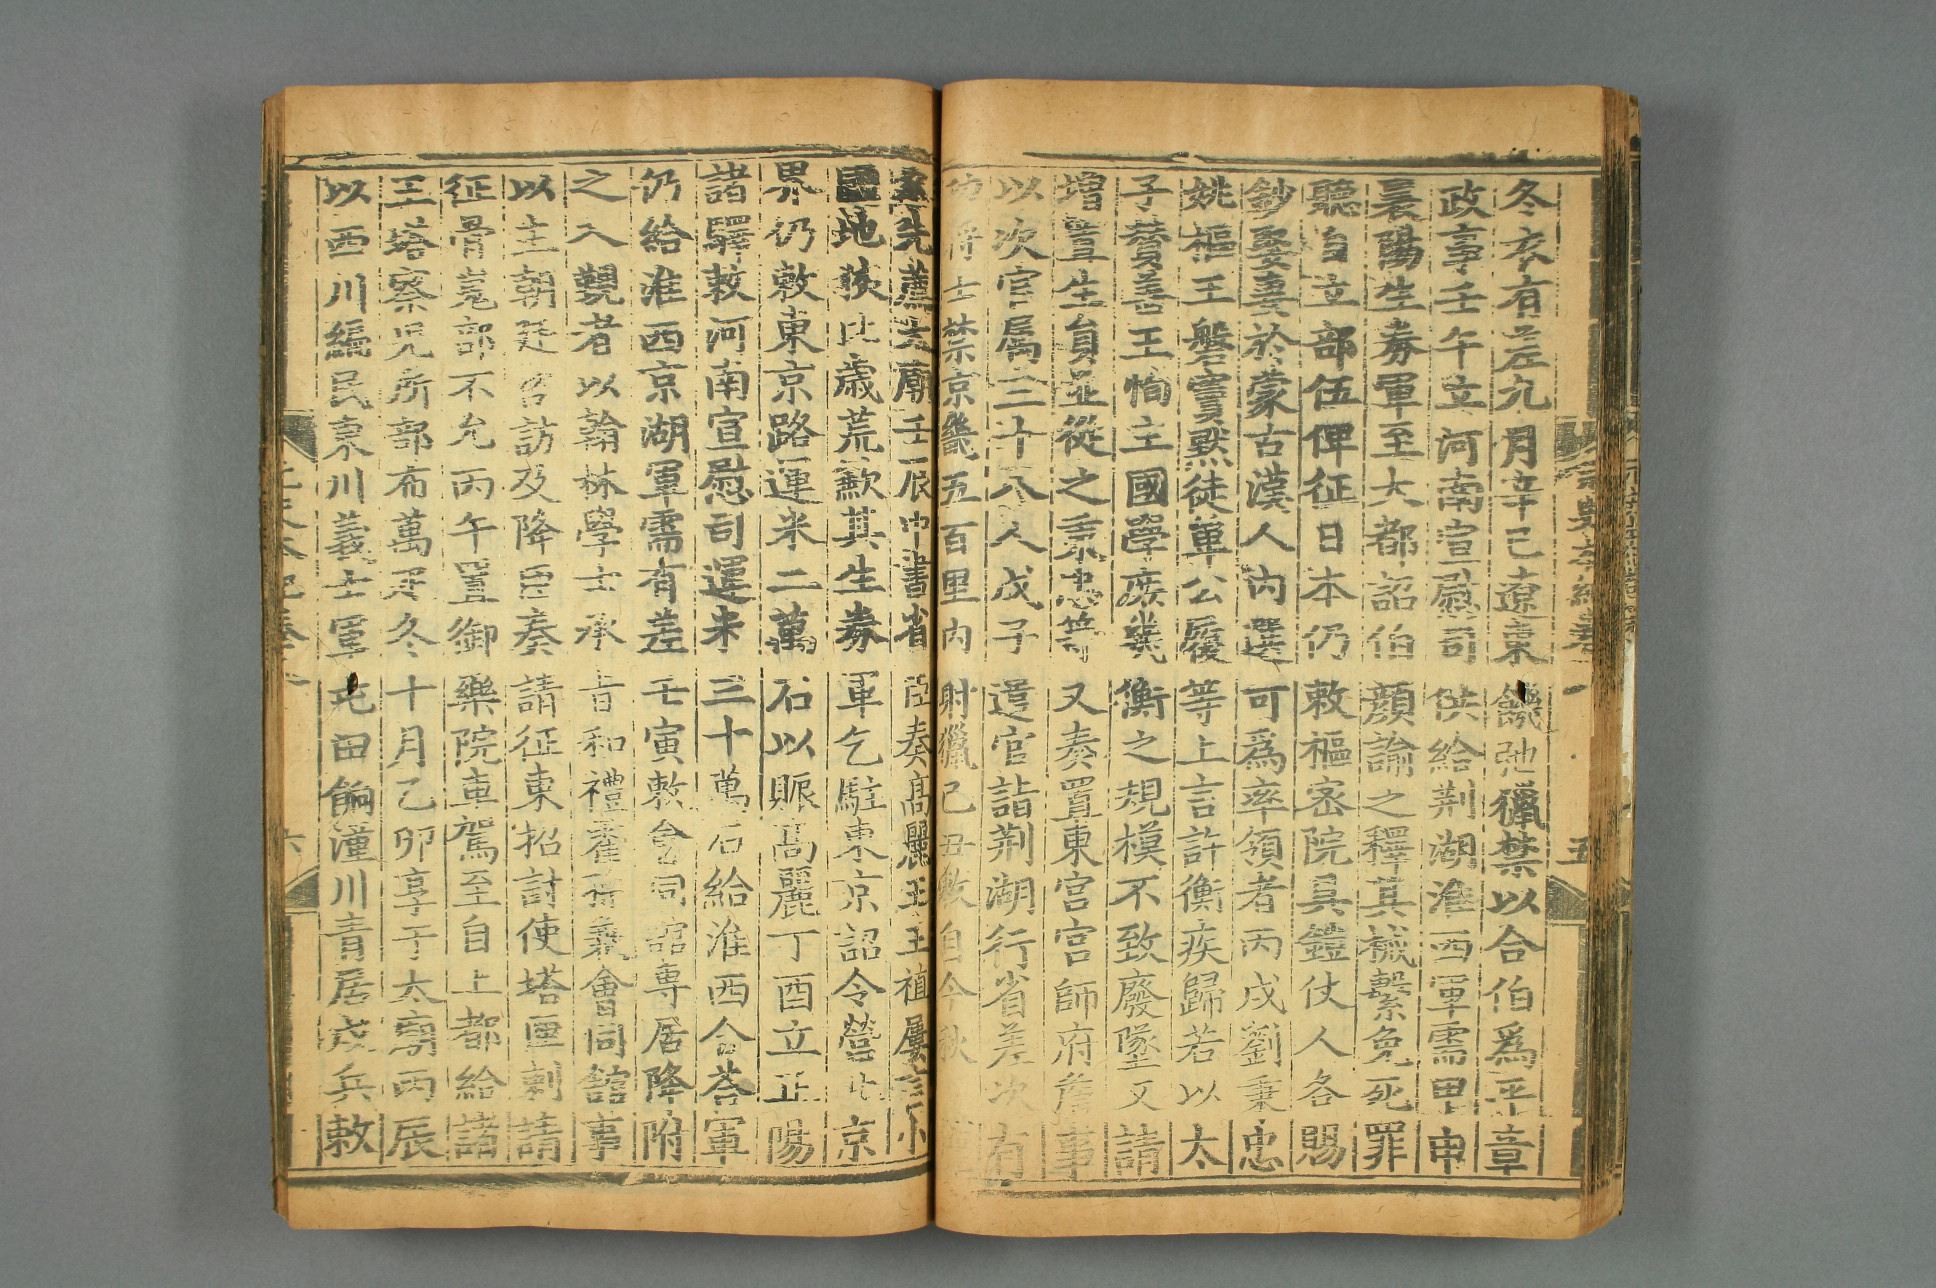 冬衣有差九月辛巳遼東饑弛獵禁以合伯爲平章
政事壬午立河南宣慰司供給荆湖淮西軍需甲申
襄陽生券軍至大都詔伯顔諭之釋其械繫免死罪
聽自立部伍俾征日本仍敕樞密院具鎧仗人各賜
鈔娶妻於蒙古漢人内選可爲率領者丙戌劉秉忠
姚樞王磐竇默徒單公履等上言許衡疾歸若以太
子贊善王恂主國學庶幾衡之規模不致廢墜又請
增置生員並從之秉忠等又奏置東宫宫師府詹事
以次官屬三十八人戊子遣官詣荆湖行省差次有
功將士禁京畿五百里内射獵己丑敕自今秋
先薦太廟壬辰中書省臣奏高麗王王植屢言小
國地狹比歲荒歉其生券軍乞駐東京詔令營北京
界仍敕東京路運米二萬石以賑高麗丁酉立正陽
諸驛敕河南宣慰司運米三十萬石給淮西合荅軍
仍給淮西京湖軍需有差壬寅敕會同館專居降附
之入覲者以翰林學士承旨和禮霍孫兼會同館事
以主朝廷咨訪及降臣奏請征東招討使塔匣剌請
征骨嵬部不允丙午置御藥院車駕至自上都給諸
王塔察兒所部布萬疋冬十月乙卯享于太廟丙辰
以西川編民東川義士軍屯田餉潼川青居戍兵敕
五
六